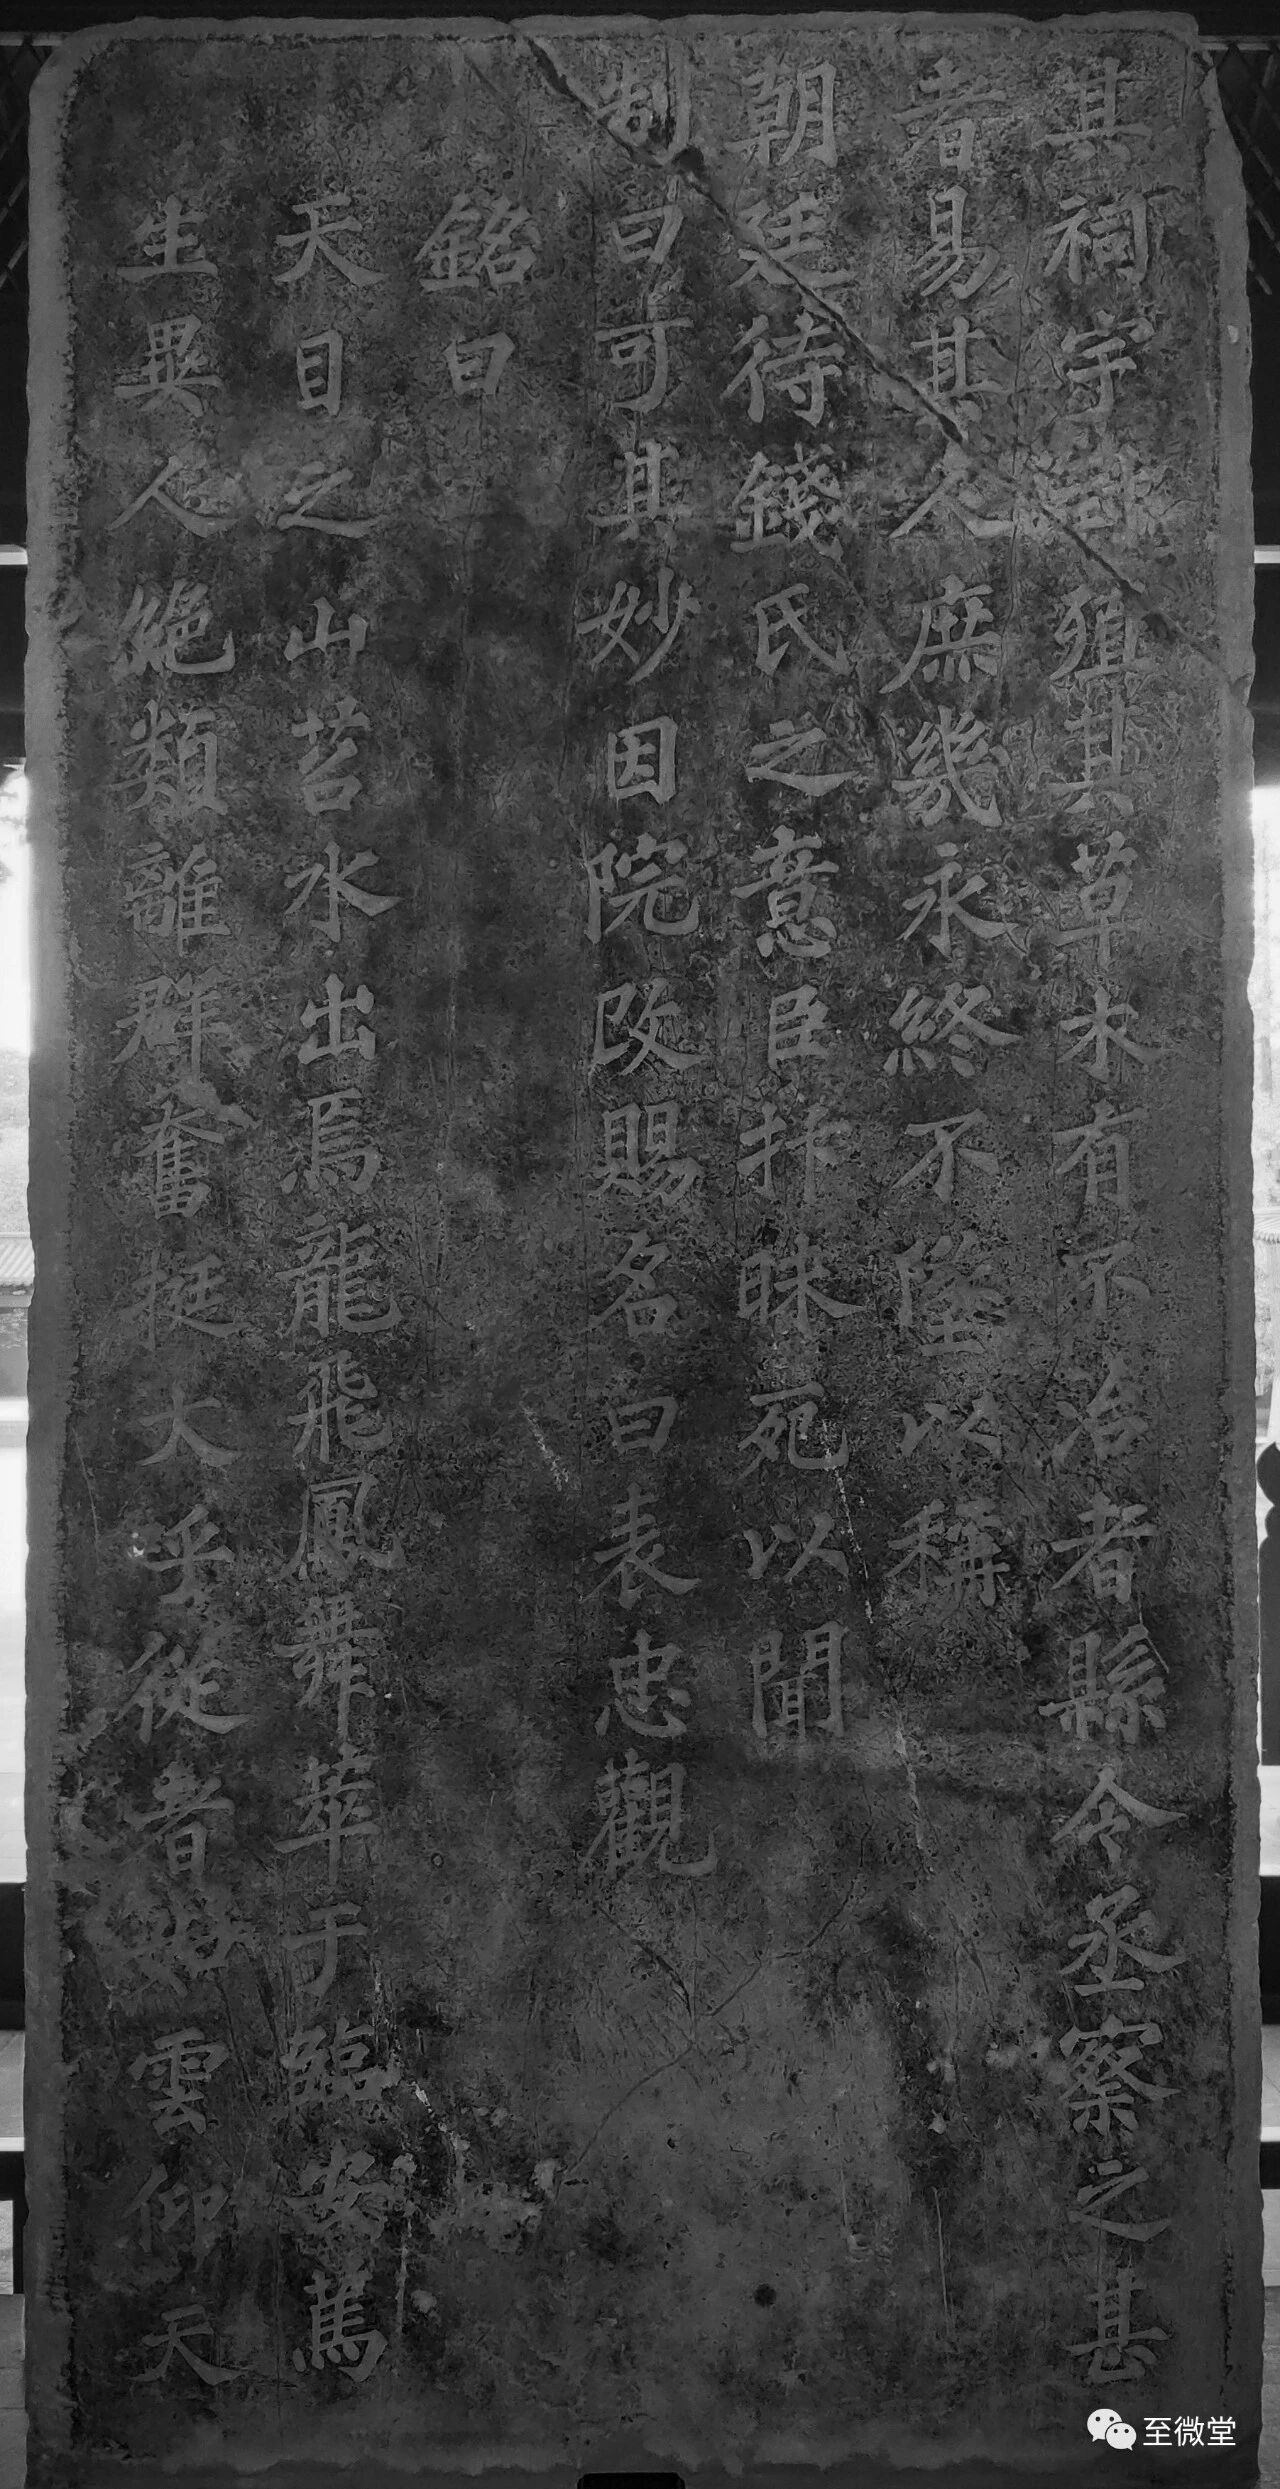 其祠宇封殖其草木有不治者縣令丞察之甚
者易其人庶幾永終不墜以稱
朝廷待錢氏之意臣抃昧死以聞
制曰可其妙因院改賜名曰表忠觀
銘曰
天目之山苕水出焉龍飛鳳舞萃于臨安篤
生異人絕類離群奮挺大呼從者如雲仰天
至微堂